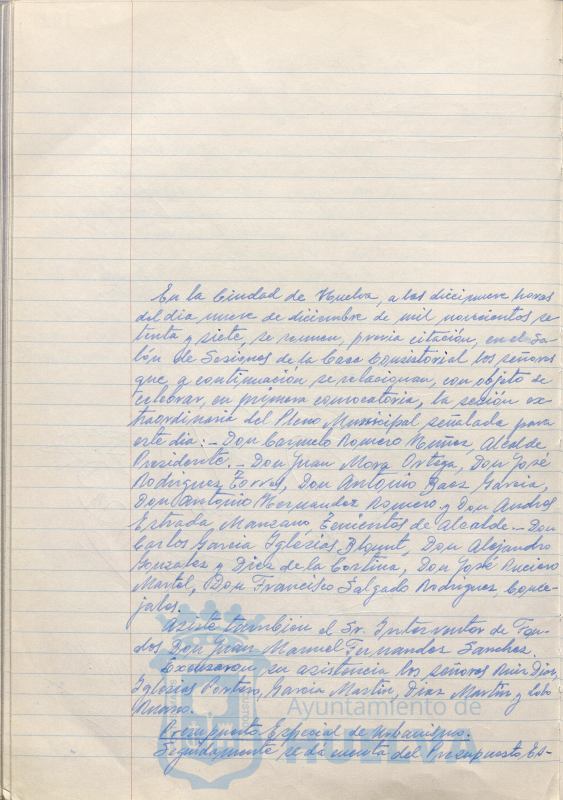 En la Ciudad de Huelva, a las diecinueve horas
del día nueve de diciembre de mil novecientos se
tenta y siete, se reunen, previa citación, en el Sa-
lón de Sesiones de la Casa Consistorial los señores
que, a continuación se relacionan, con objeto de
celebrar, en primera convocatoria, la sesión ex-
traordinaria del Pleno Municipal señalada para
este día:- Don Carmelo Romero Núñez, Alcalde
Presidente.- Don Juan Mora Ortega, Don José
Rodriguez Torres, Don Antonio Baez Garcia,
Don Antonio Hernandez Romero y Don Andres
Estrada Manzano, Tenientes de Alcalde.- Don
Carlos Garcia Iglésias Blount, Don Alejandro
Gonzalez y Diez de la Cortina, Don José Ruciero
Martel, Don Francisco Salgado Rodriguez, Conce-
jales.
Asiste tambien el Sr. Interventor de Fon-
dos Don Juan Manuel Fernandez Sanchez.
Excusaron su asistencia los señores Ruiz Diaz,
Iglesias Portero, Garcia Martín, Diaz Martín y Lobo
Ruano.
Presupuesto Especial de Urbanismo.
Seguidamente se da cuenta del Presupuesto Es-
Ayuntamiento de
HUELVA